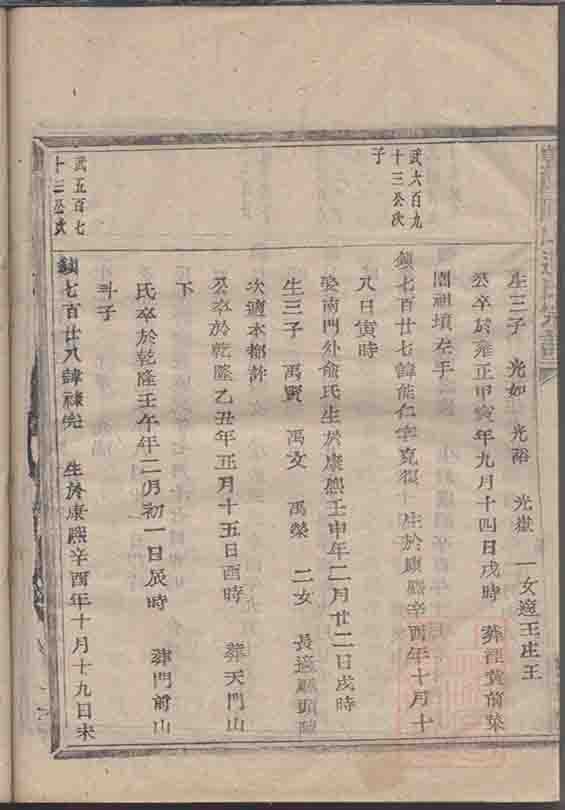 生三子 光如 光裕 光嶽 一女適王庄王
公卒於雍正甲寅年九月十四日戌時 葬涇黃前菜
園祖墳左手
武六百九
十三公次
子
鎮七百廿七諱能仁字克復 生於康熙辛酉年十月十
八日寅時
娶南門外俞氏生於康熙壬申年二月廿二日戌時
生三子 禹賢 禹文 禹榮 二女 長適縣頭
次適本都許
公卒於乾隆乙丑年五月十五日酉時 葬天門山
下
氏卒於乾隆壬午年二月初一日辰時 葬門前山
斗子
武五百七
十三公次
鎮七百廿八諱祿 生於康熙辛酉年十月十九日未